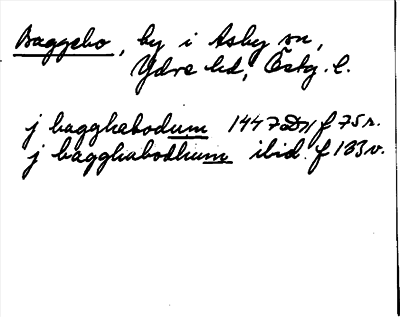 Baggebo, by i Asby sn,
Ydre hd, Östg. l.
j bagghebodum 1447 Dn f 75 r.
j bagghabodhum ibid. f 133 v.